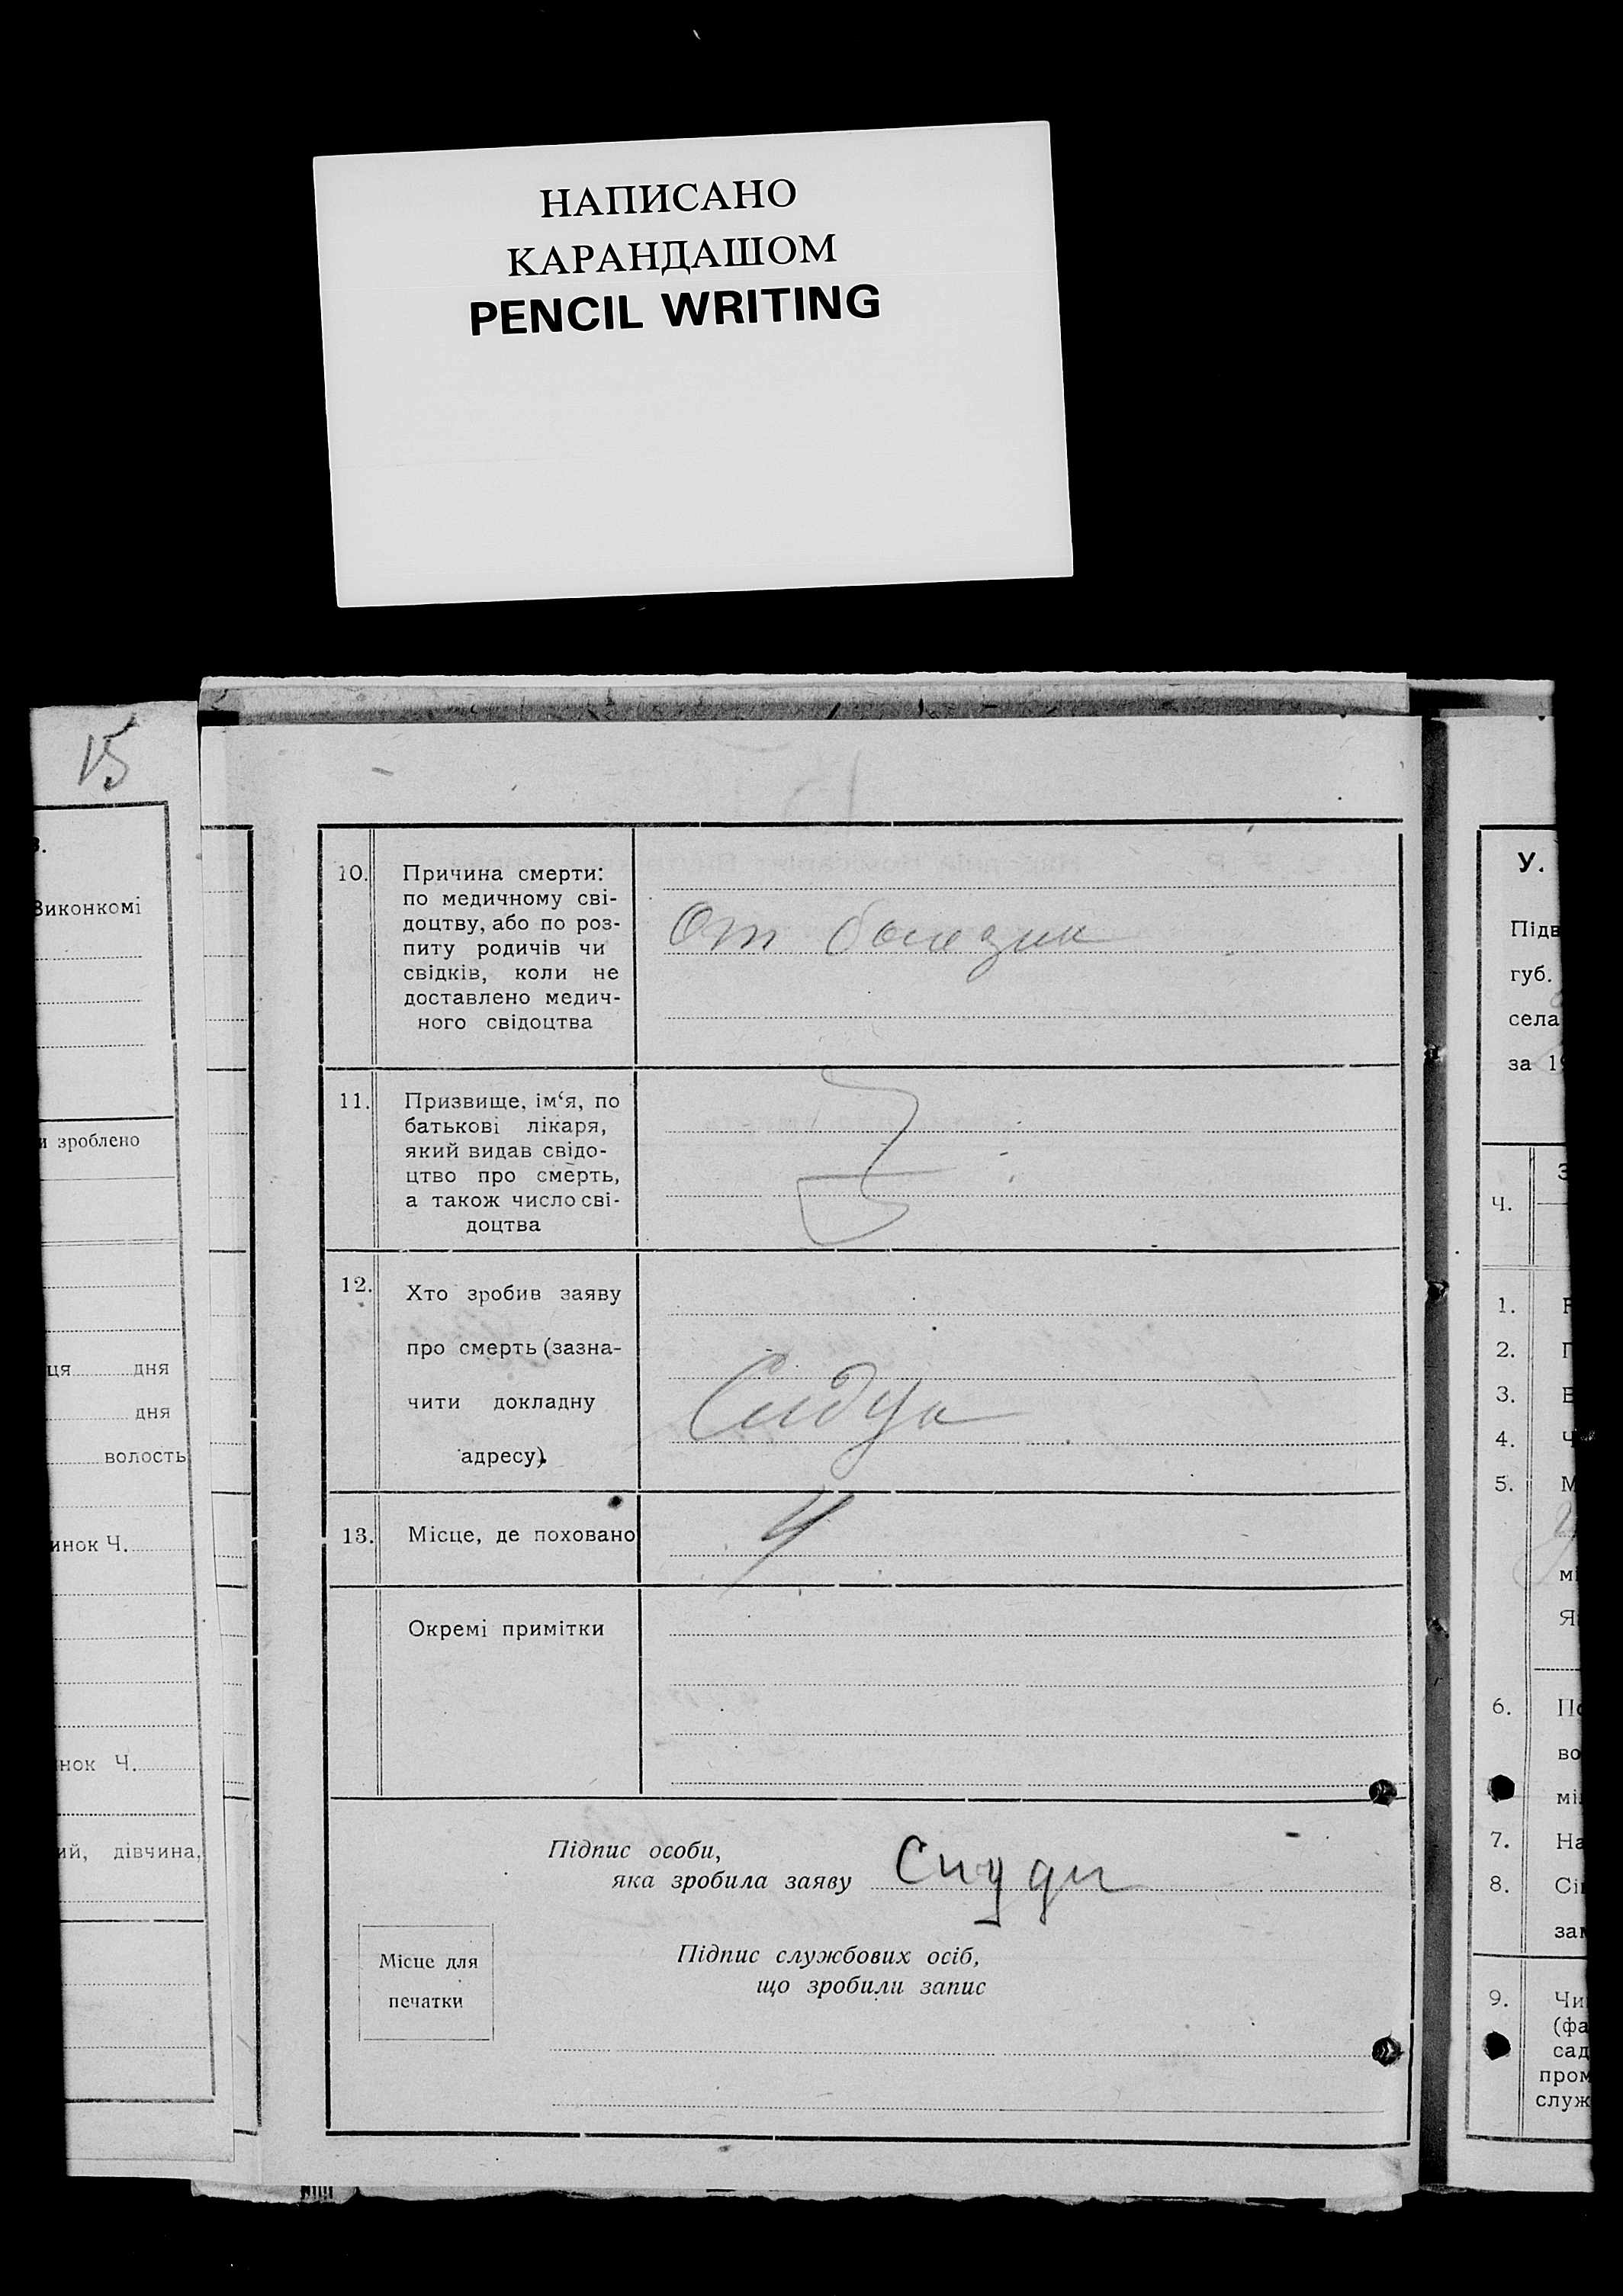 НАПИСАНО
КАРАНДАШОМ
PENCIL WRITING
15
Виконкомі
зроблено
дня
дня
волость
Ч.
Ч.
дівчина,
10.
Причина смерти:
по медичному сві-
доцтву, або по роз-
питу родичів чи
свідків, коли не
доставлено медич-
ного свідоцтва
От болезни
11.
Призвище, ім‘я, по
батькові лікаря,
який видав свідо-
цтво про смерть,
а також число сві-
доцтва
12.
Хто зробив заяву
про смерть (зазна-
чити докладну
адресу).
13.
Місце, де поховано
Окремі примітки
Підпис особи,
яка зробила заяву
Місце для
печатки
Підпис службових осіб,
що зробили запис
У.
губ.
села
за
Ч.
1.
2.
3.
4.
5.
6.
7.
8.
9.